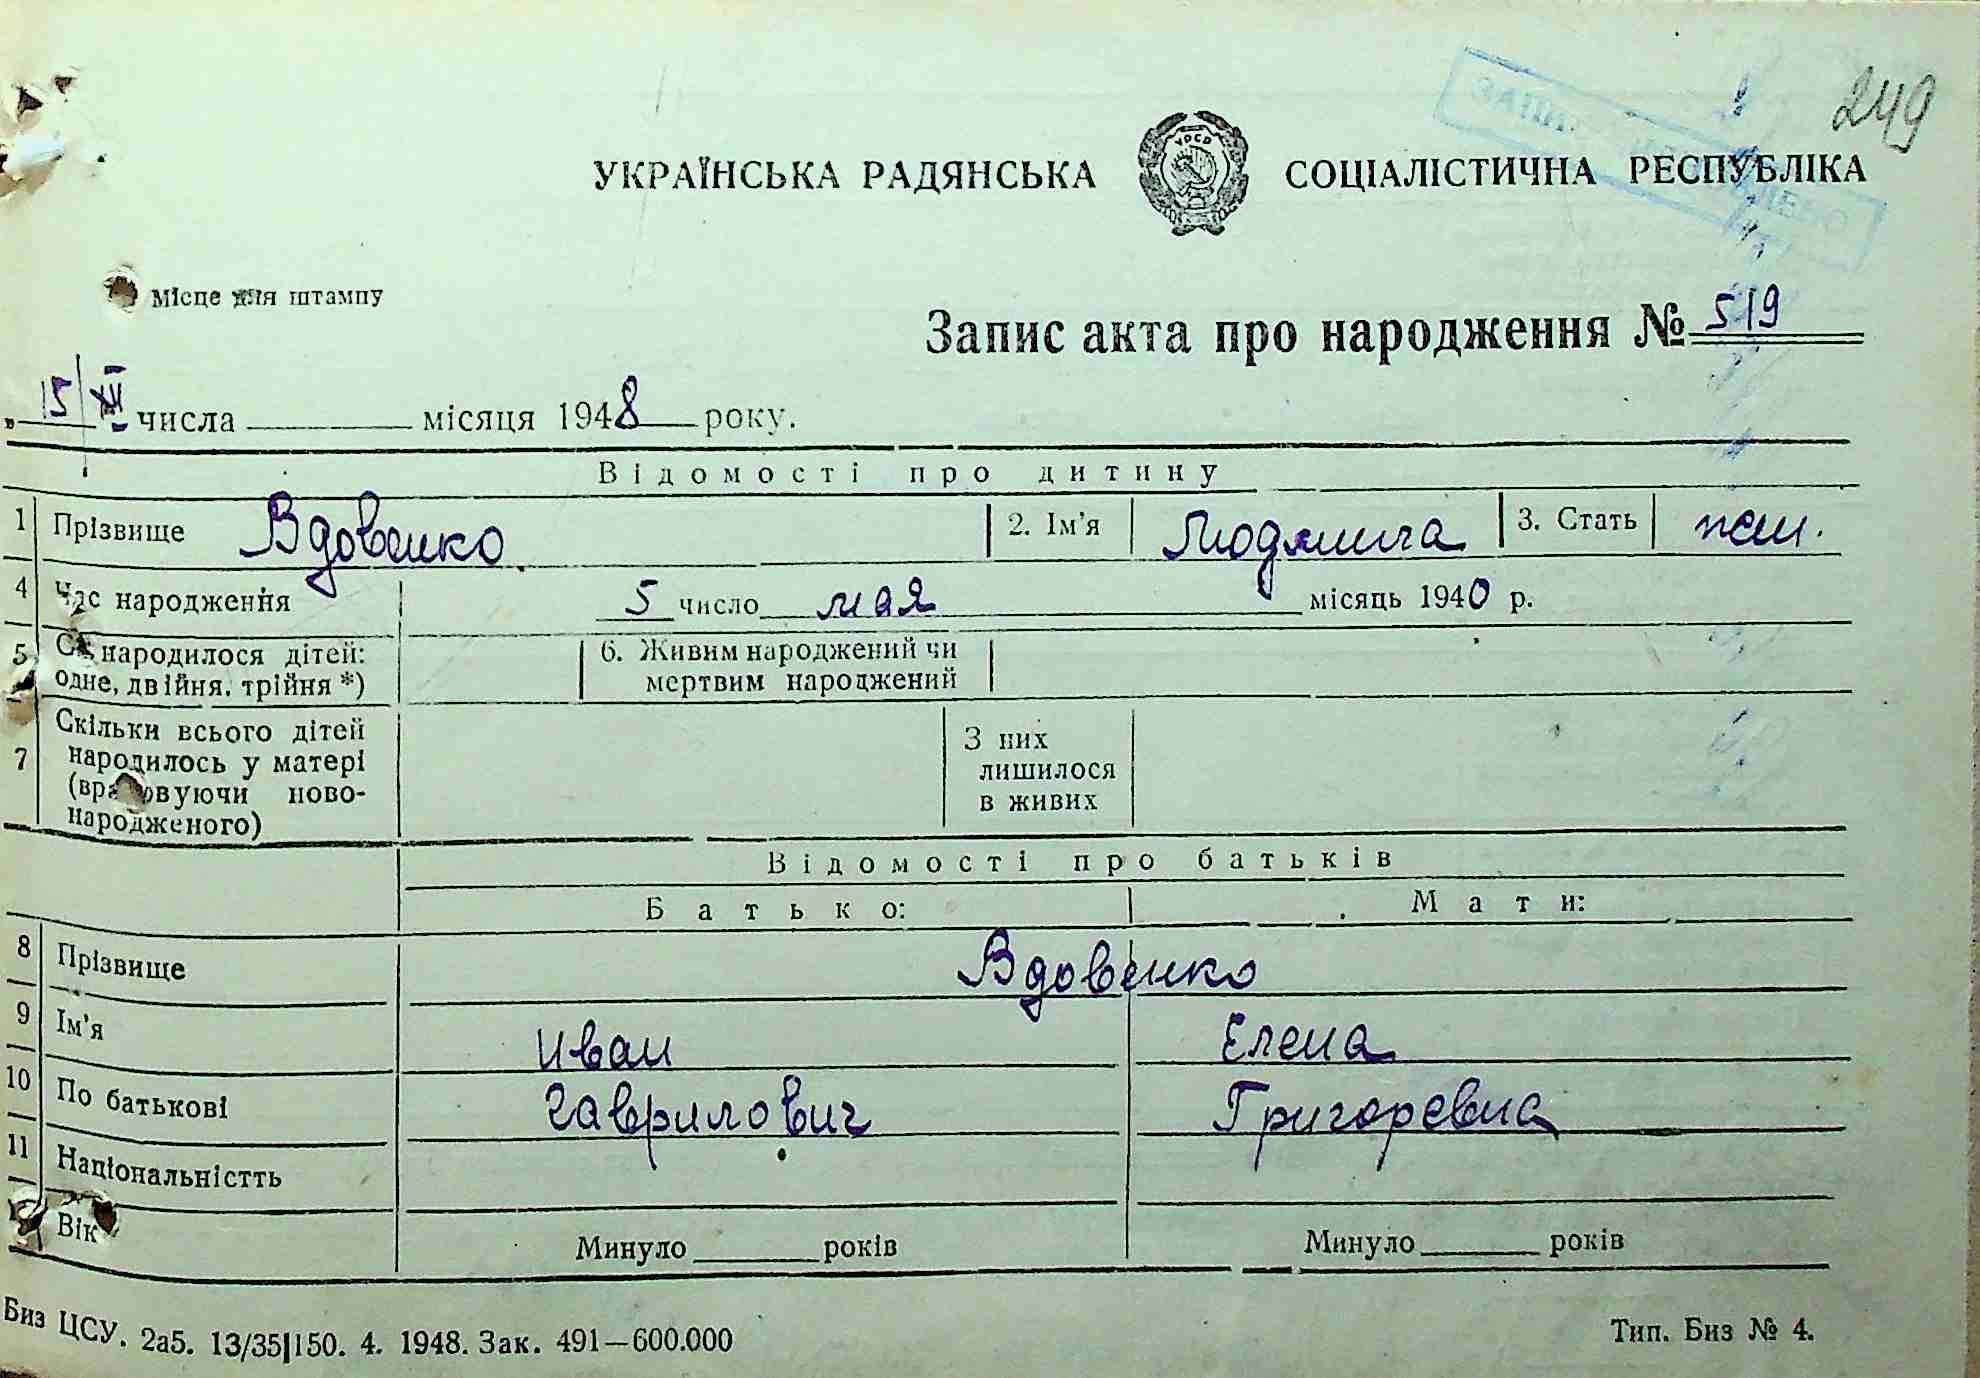 249
УКРАЇНСЬКА РАДЯНСЬКА СОЦІАЛІСТИЧНА РЕСПУБЛІКА
УРСР
Місце для штампу
Запис акта про народження № 519
„ 15/XII числа місяця 1948 року.
Відомості про дитину
1 Прізвище Вдовенко 2. Ім'я Людмила 3. Стать жен.
4 Час народження 5 число мая місяць 1940 р.
5 народилося дітей: 6. Живим народжений чи
одне, двійня. трійня *) мертвим народжений
Скільки всього дітей З них
7 народилось у матері лишилося
(враховуючи ново- в живих
народженого)
Відомості про батьків
Батько: Мати:
8 Прізвище Вдовенко
9 Ім'я Иван Елена
10 По батькові Гаврилович Григоревна
11 Національністть
Вік Минуло років Минуло років
Биз ЦСУ. 2а5. 13/35|150. 4. 1948. Зак. 491—600.000 Тип. Биз № 4.